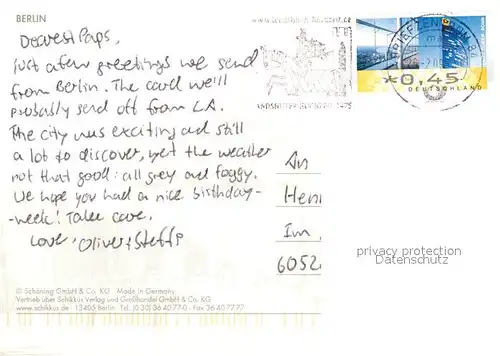 BERLIN
Dearest Paps,
Just a few greetings we send
from Berlin. The card we'll
probably send off from LA.
The city was exciting and still
a lot to discover, yet the weather
not that good: all grey and foggy.
We hope you had a nice birthday-
-week! Take care.
Love, Oliver + Steffi
LANDSHUTER HOCHZEIT 1475
BRIEFZENTRUM 84
*0,45
DEUTSCHLAND
An
Im
6052
privacy protection
Datenschutz
© Schöning GmbH & Co. KG Made in Germany
Vertrieb über Schikkus Verlag und Großhandel GmbH & Co. KG
www.schikkus.de · 13405 Berlin Tel. (0 30) 36 40 77-0 · Fax 36 40 77 77